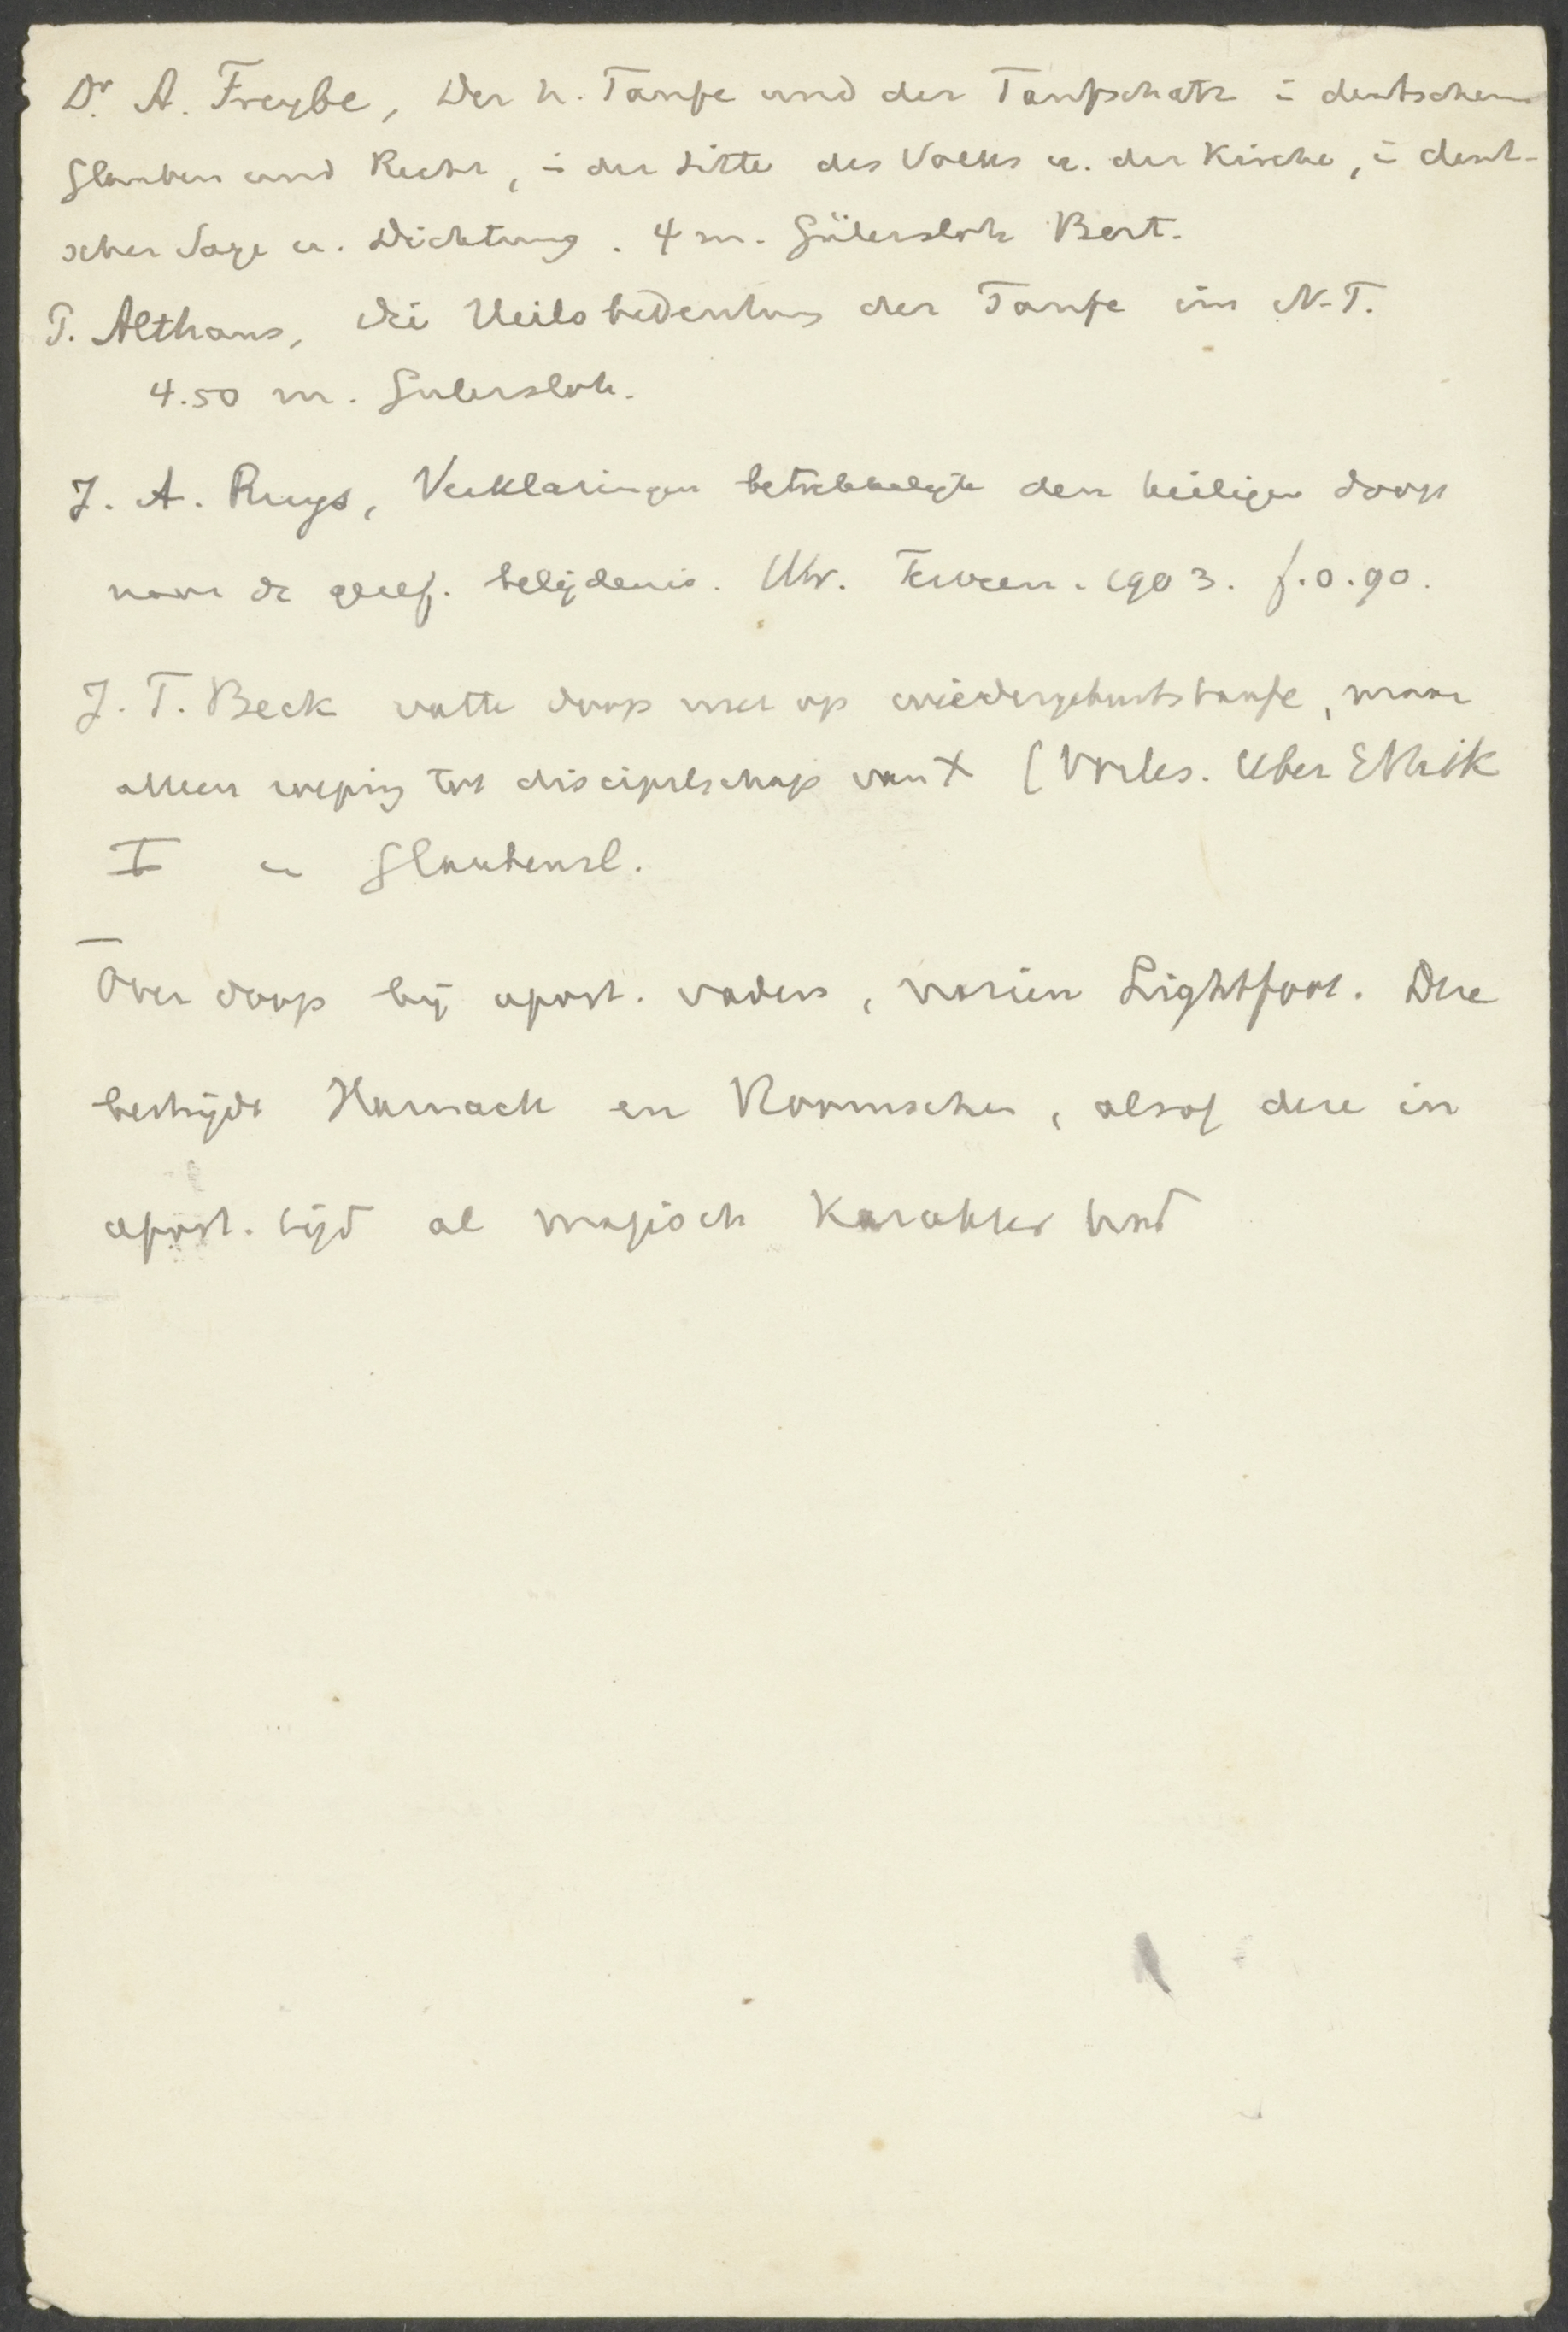 Dr. A. Freybe, Der h. Taufe und der Taufschatz i deutschem
Glauben und Recht, i der Sitte des Volks u. der Kirche, i deut-
scher Sage u. Dichtung. 4 m. Gütersloh Bert.
P. Althaus, die Heilsbedeutung der Taufe im N.T.
4.50 m. Gutersloh.
J. A. Ruys, Verklaringen betrekkelijk den heiligen doop
naar de geref. belijdenis. Utr. Terveen. 1903. f.0.90.
J. T. Beck vatte doop niet op wiedergeburtstaufe, maar
alleen roeping tot discipelschap van X (Vorles. Uber Ethik
I en Glaubensl.
Over doop bij apost. vaders, Lightfoot. Deze
bestrijdt Harnack en Roomschen, alsof deze in
apost. tijd al magisch karakter had